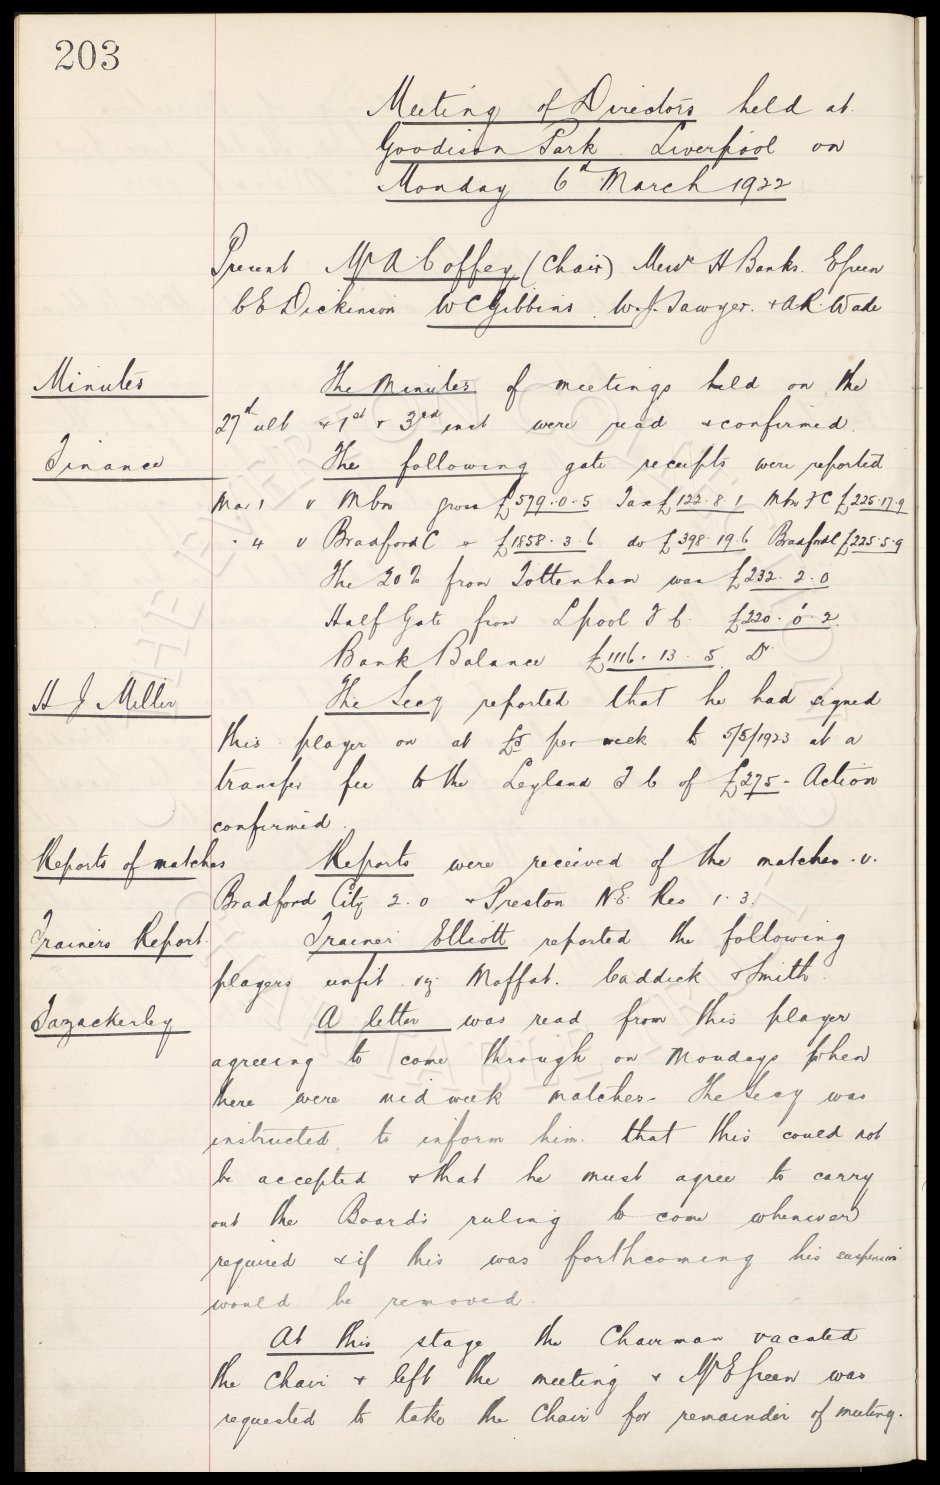 203
Meeting of Directors held at
Goodison Park. Liverpool on
Monday 6th March 1922
Present Mr A Coffey (Chair) Messrs H Banks. E Green
C E Dickinson W C Gibbins. W. J. Sawyer. + A R. Wade
Minutes The Minutes of meetings held on the
27th ult + 1st + 3rd inst were read + confirmed.
Finance The following gate receipts were reported
Mar 1 v Mbro gross £579.0.5 Tax £122.8.1 Mbro F C £225.17.9
" 4 v Bradford C " £1858.3.6 do £398.19.6 Bradford C £225.5.9
The 20% from Tottenham was £232.2.0
Half Gate from Lpool F C. £220.0.2.
Bank Balance £1116.13.5 Dr
H J Miller The Secy reported that he had signed
this player on at £5 per week to 5/5/1923 at a
transfer fee to the Leyland F C of £275 - Action
confirmed.
Reports of matches Reports were received of the matches. v.
Bradford City 2.0 + Preston N E. Res 1.3.
Trainers Report. Trainer Elliott reported the following
players unfit. viz Moffat. Caddick + Smith.
Fazackerley A letter was read from this player
agreeing to come through on Mondays when
there were midweek matches. The Secy was
instructed to inform him. that this could not
be accepted + that he must agree to carry
out the Board's ruling to come whenever
required + if this was forthcoming his suspension
would be removed.
At this stage the Chairman vacated
the Chair + left the meeting + Mr E Green was
requested to take the Chair for remainder of meeting.